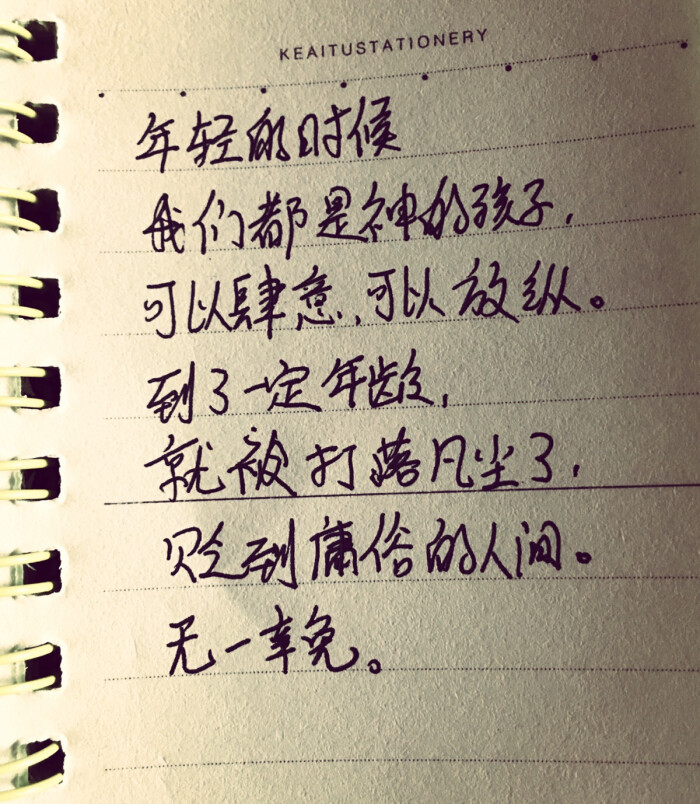 KEAITUSTATIONERY
年轻的时候
我们都是神的孩子,
可以肆意,可以放纵。
到了一定年龄,
就被打落凡尘了,
贬到庸俗的人间。
无一幸免。